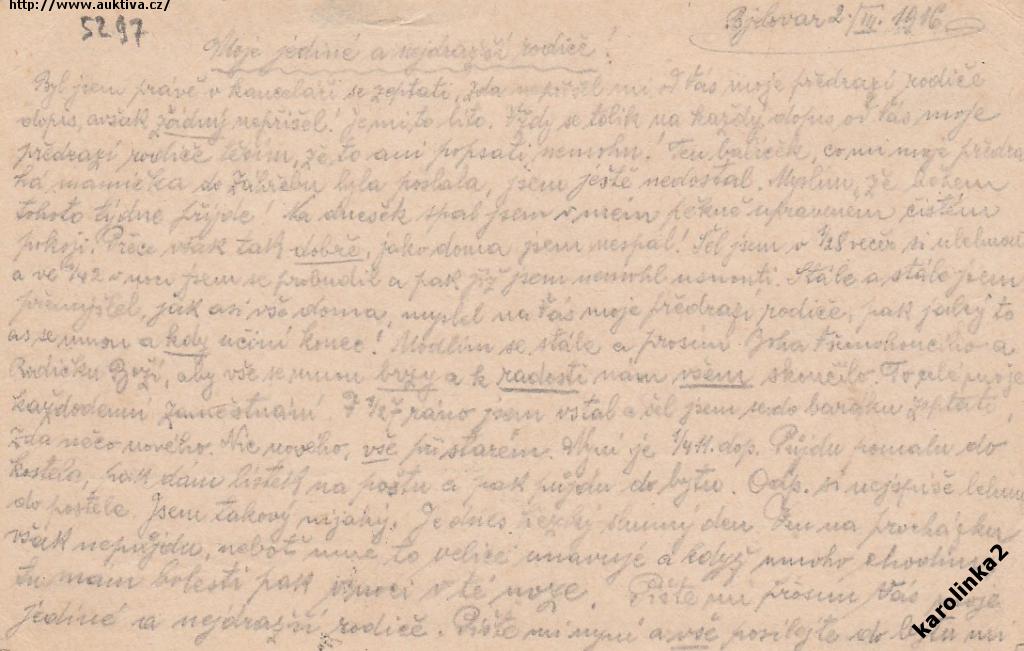 http://www.auktiva.cz/
5297
Bjelovar 2./III. 1916
Moje jediné a nejdražší rodiče!
Byl jsem právě v kanceláři se zeptati, zda nepřišel mi od Vás moje předrazí rodiče
dopis, avšak žádný nepřišel! Je mi to líto. Vždy se tolik na každý dopis od Vás moje
předrazí rodiče těším, že to ani popsati nemohu! Ten balíček, co mi moje předra-
há mamička do Záhřebu byla poslala, jsem ještě nedostal. Myslím, že během
tohoto týdne přijde! Na dnešek spal jsem v mém pěkně upraveném čistém
pokoji. Přece však tak dobře, jako doma jsem nespal! Šel jsem v 1/28 večer si ulehnout
a ve 1/42 v noci jsem se probudil a pak již jsem nemohl usnouti. Stále a stále jsem
přemýšlel, jak asi vše doma, myslel na Vás moje předrazí rodiče, pak jaký to
as se mnou a kdy učiní konec! Modlím se stále a prosím Boha Všemohoucího a
Rodičku Boží, aby vše se mnou brzy a k radosti nám všem skončilo. To celé moje
každodenní zaměstnání. 1/27 ráno jsem vstal a šel jsem se do baráku zeptati,
zda něco nového. Nic nového, vše při starém. Nyní je 1/411. dop. Půjdu pomalu do
kostela, pak dám lístek na poštu a pak půjdu do bytu. Odp. si nejspíše lehnu
do postele. Jsem takový nijaký. Je dnes hezký slunný den. Ven na procházku
však nepůjdu, neboť mne to velice unavuje a když mnoho chodím
tu mám bolesti pak v noci v té noze. Pište mi prosím Vás moje
jediné a nejdražší rodiče. Pište mi nyní a vše posílejte do bytu mi
karolinka2